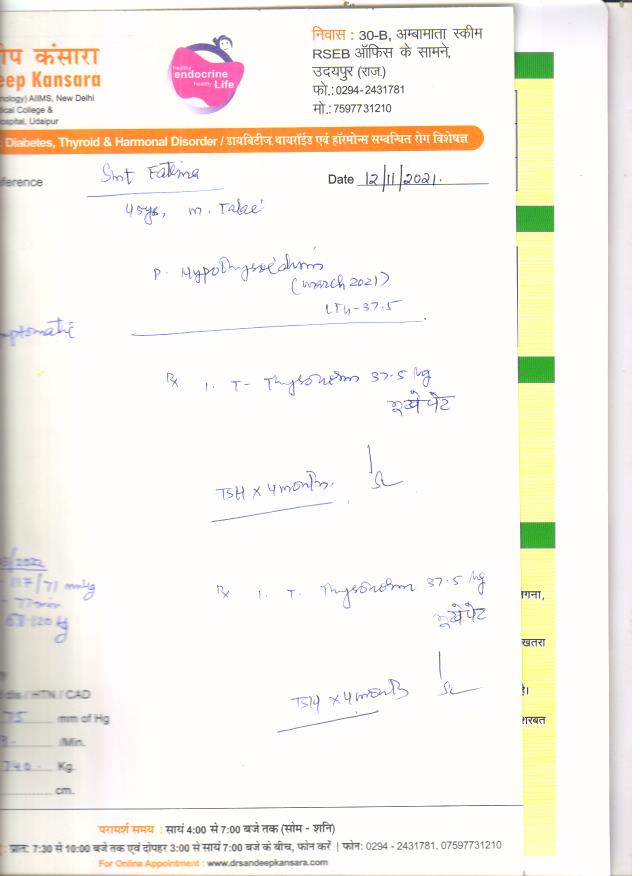 निवास : 30-B, अम्बामाता स्कीम
RSEB ऑफिस के सामने,
उदयपुर (राज.)
फो.:0294-2431781
मो.:7597731210
ोप कंसारा
deep Kansara
nology) AIIMS, New Delhi
ical College &
ospital, Udaipur
healthy
endocrine
healthy Life
: Diabetes, Thyroid & Harmonal Disorder / डायबिटीज, थायरॉईड एवं हॉरमोन्स सम्बन्धित रोग विशेषज्ञ
eference
Smt Fatima
Date 12/11/2021.
45yrs, m.
P. Hypothyroidism
(March 2021)
LT4-37.5
mptomatic
Rx 1. T- Thyronorm 37.5 µg
भूखे पेट
TSH x 4 months.
3/2022
117/71 mmHg
77 min
68.120 kg
Rx 1. T. Thyronorm 37.5 µg
भूखे पेट
TSH x 4 months
dis / HTN / CAD
75 mm of Hg
/Min.
740 Kg.
cm.
गना,
खतरा
है।
शरबत
परामर्श समय : सायं 4:00 से 7:00 बजे तक (सोम - शनि)
: प्रात: 7:30 से 10:00 बजे तक एवं दोपहर 3:00 से सायं 7:00 बजे के बीच, फोन करें | फोन: 0294 - 2431781, 07597731210
For Online Appointment : www.drsandeepkansara.com